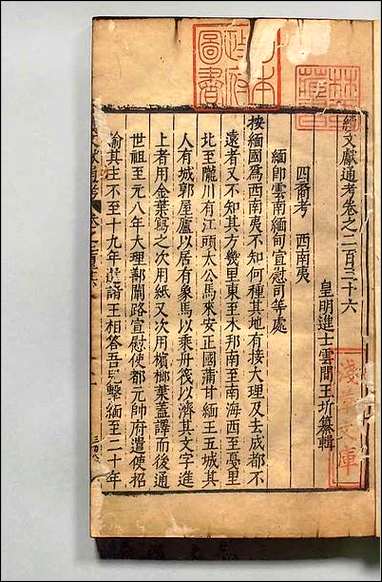 續文獻通考卷之二百三十六
皇明進士雲間王圻纂輯
四裔考 西南夷
緬即雲南緬甸宣慰司等處
按緬國為西南夷不知何種其地有接大理及去成都不
遠者又不知其方幾里東至木邦南至南海西至戞里
北至隴川有江頭太公馬來安正國蒲甘緬王五城其
人有城郭屋廬以居有象馬以乘舟筏以濟其文字進
上者用金葉寫之次用紙又次用檳榔葉蓋譯而後通
世祖至元八年大理鄯闡路宣慰使都元帥府遣使招
諭其主不至十九年詔諸王相答吾兒擊緬至二十年
日本政府圖書
淺草文庫